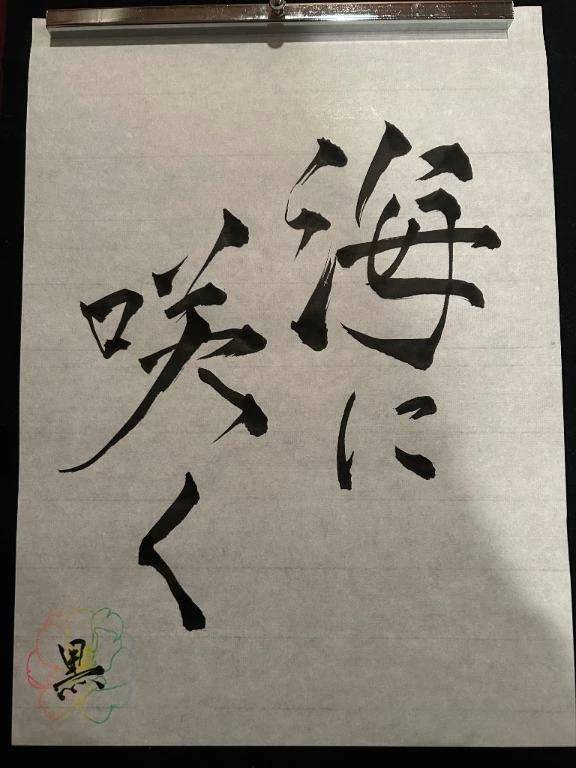 海に
咲く
黒